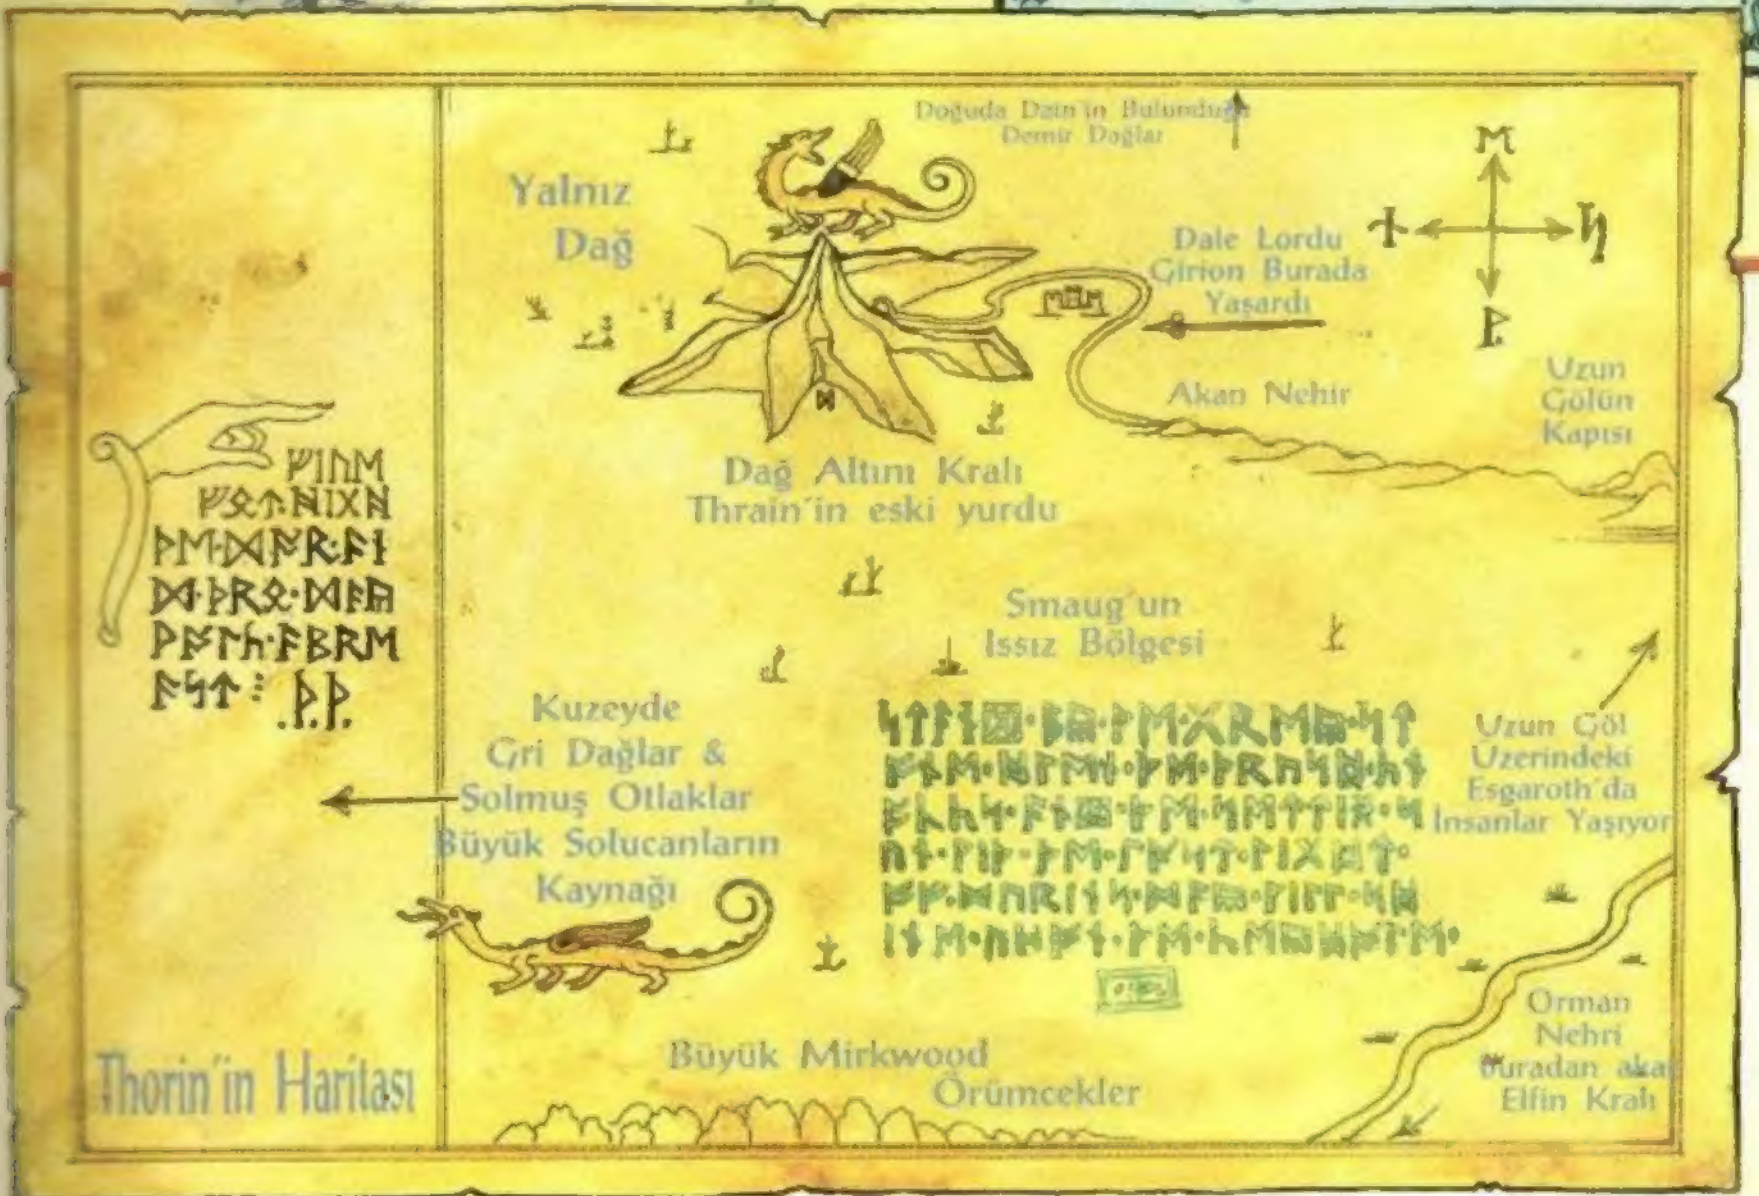 Doğuda Dain'in Bulunduğu
Demir Dağlar
Yalnız
Dağ
ᛖ
ᚾ
ᛋ
ᚹ
Dale Lordu
Girion Burada
Yaşardı
Akan Nehir
Uzun
Gölün
Kapısı
ᛞ
Dağ Altını Kralı
Thrain'in eski yurdu
ᚠᛁᚢᛖ
ᚠᛟᛏ᛫ᚻᛁᚷᚻ
ᚦᛖ᛫ᛞᚩᚱ᛫ᚪᚾ
ᛞ᛫ᚦᚱᛟ᛫ᛗᚪᚣ
ᚹᚩᛚᚳ᛫ᚪᛒᚱᛖ
ᚪᛋᛏ⁝ .ᚦ.ᚦ.
Smaug'un
Issız Bölgesi
Kuzeyde
Gri Dağlar &
Solmuş Otlaklar
Büyük Solucanların
Kaynağı
Uzun Göl
Üzerindeki
Esgaroth'da
İnsanlar Yaşıyor
Orman
Nehri
buradan akar
Elfin Kralı
Büyük Mirkwood
Örümcekler
Thorin'in Haritası